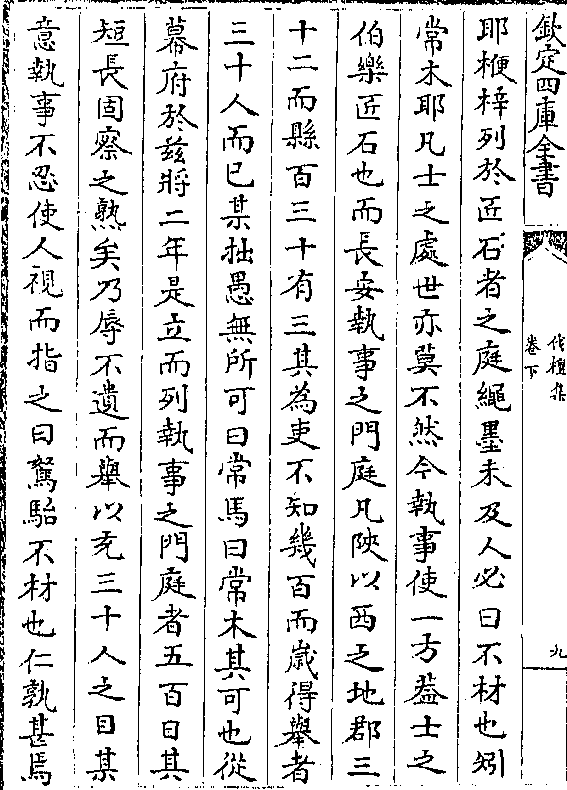 欽定四庫全書
伐檀集
卷下
九
耶楩梓列於匠石者之庭繩墨未及人必曰不材也矧
常木耶凡士之處世亦莫不然今執事使一方葢士之
伯樂匠石也而長安執事之門庭凡陜以西之地郡三
十二而縣百三十有三其為吏不知幾百而嵗得舉者
三十人而已某拙愚無所可曰常馬曰常木其可也從
幕府於兹將二年是立而列執事之門庭者五百日其
短長固察之熟矣乃辱不遺而舉以充三十人之目某
意執事不忍使人視而指之曰駑駘不材也仁孰甚焉